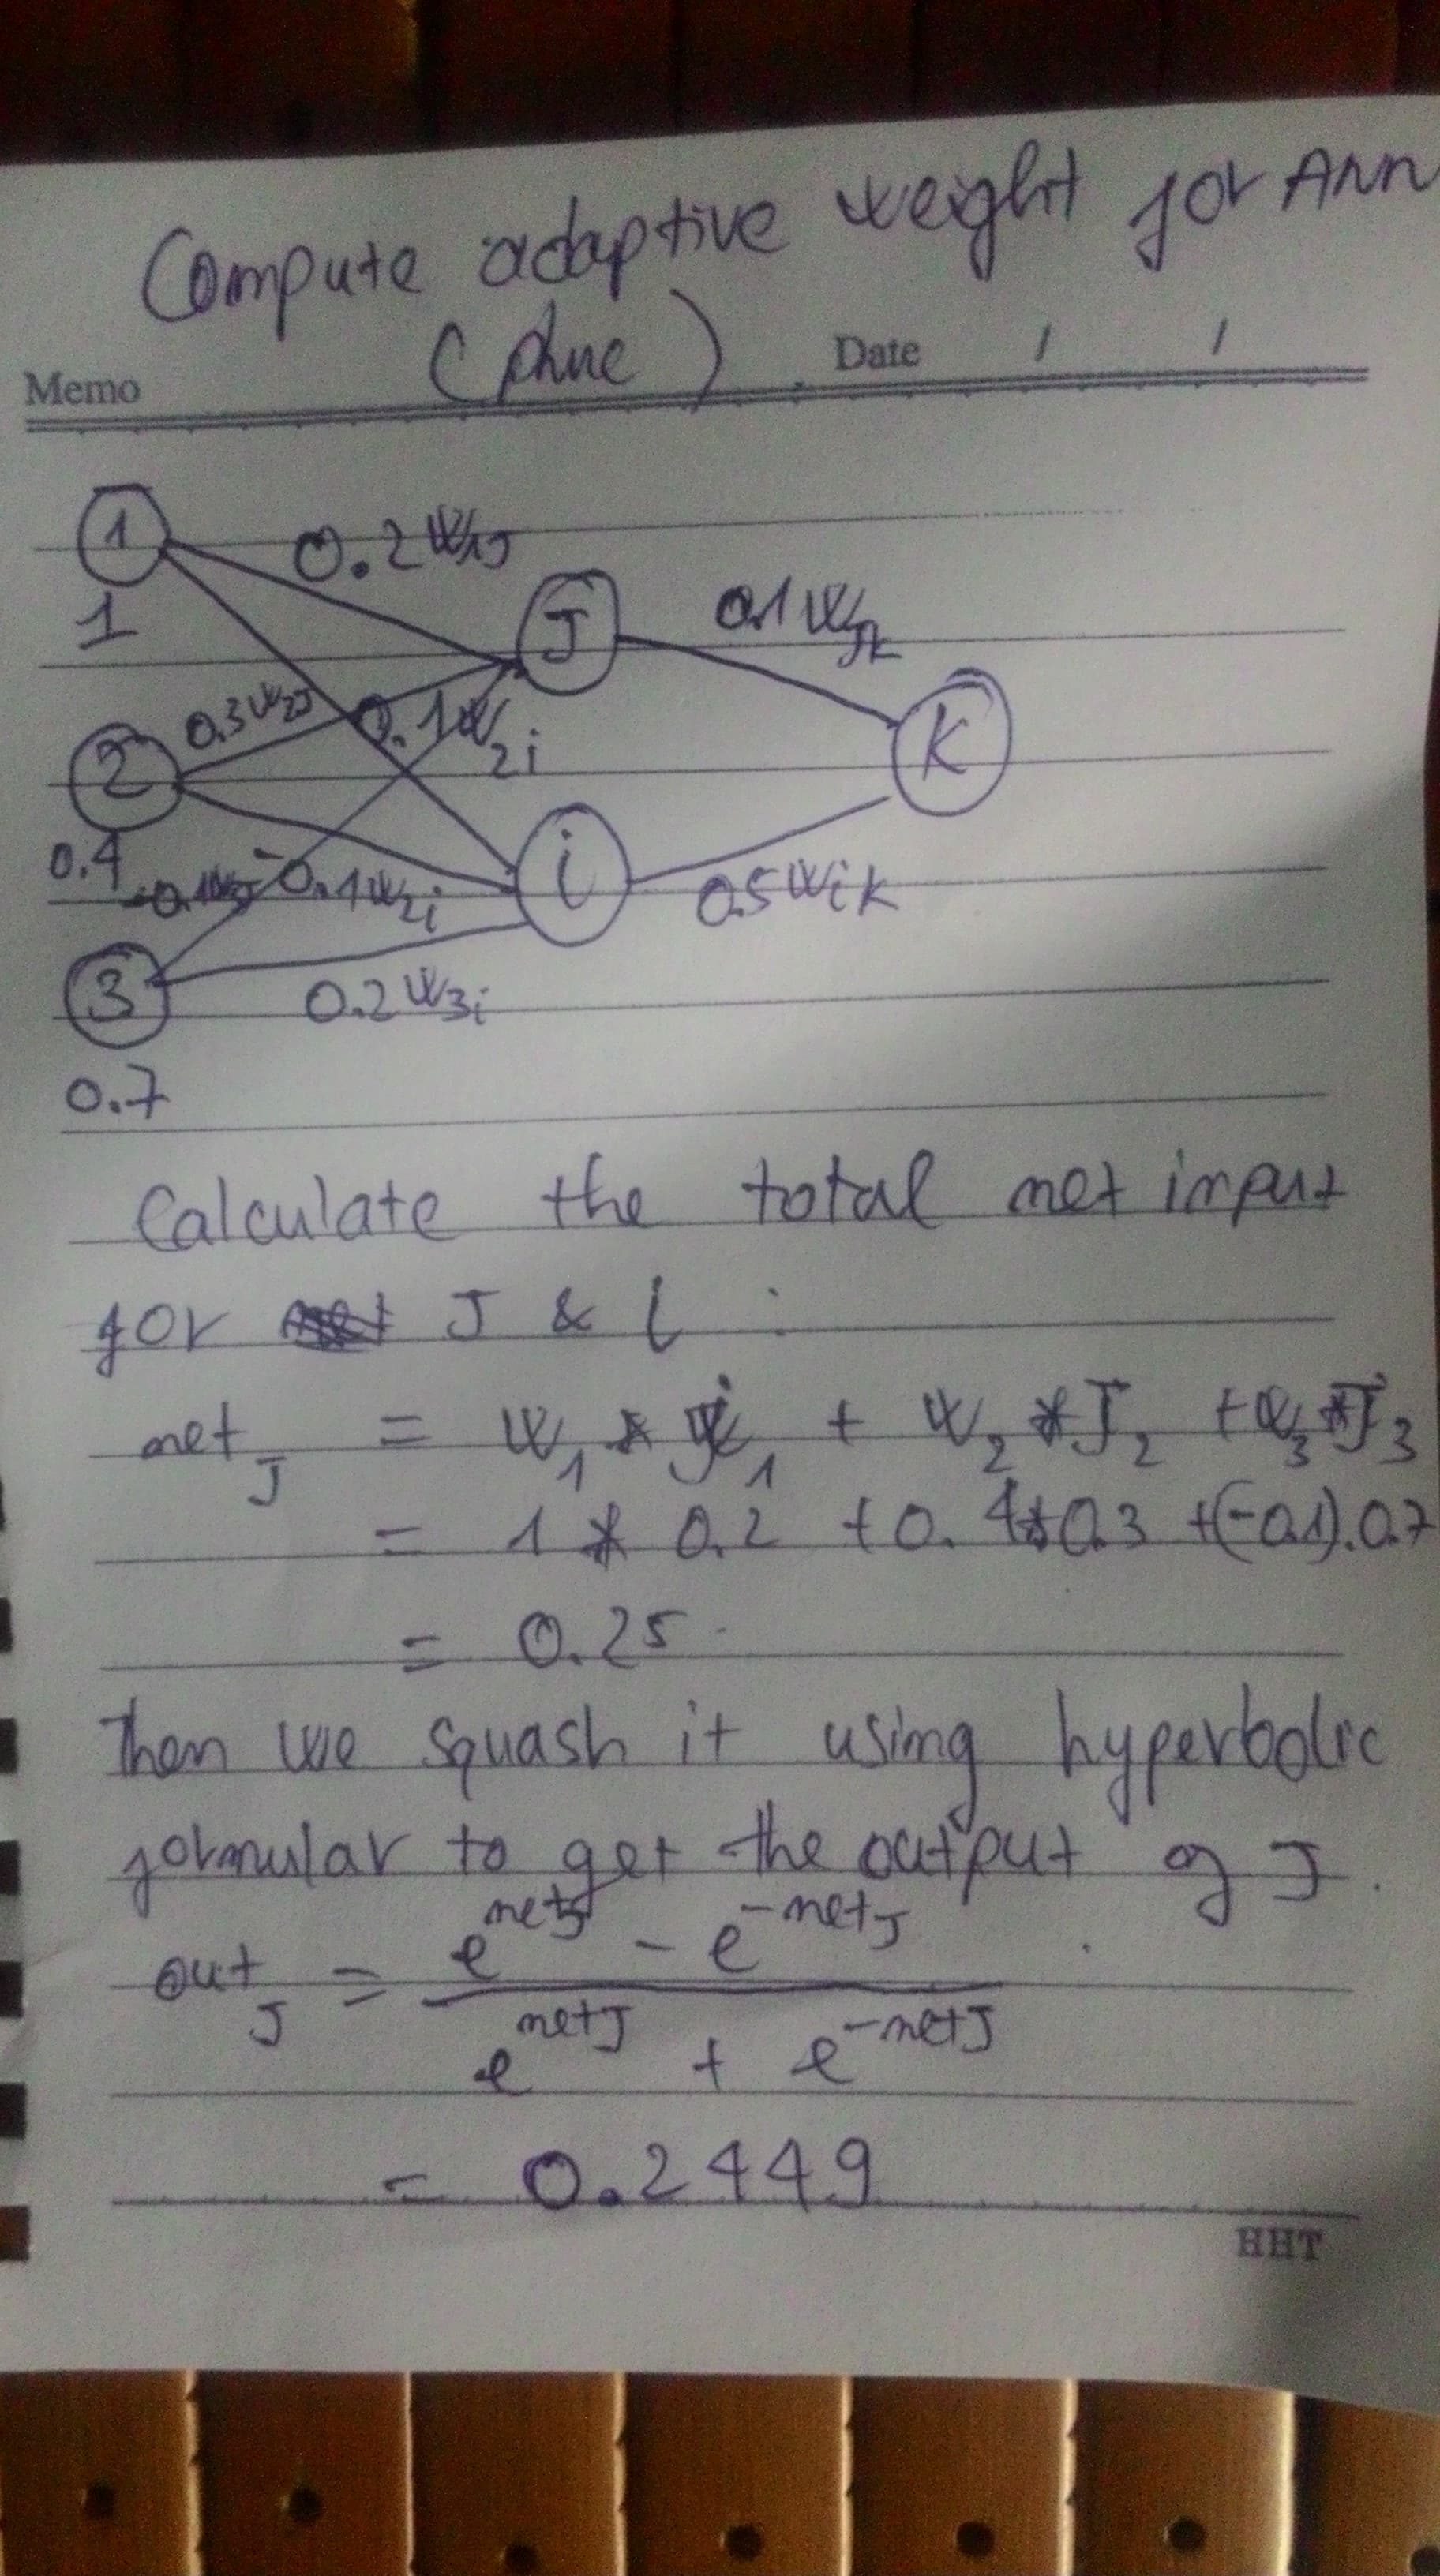 Compute adaptive weight for Ann
(phuc)
Memo
Date / /
1
0.2 W1J
1
J
0.1 WJk
0.3 W2J
0.1 W2i
K
2
0.4
i
-0.1 W2i
0.5 Wik
3
0.2 W3i
0.7
Calculate the total net input
for J & i :
netJ = W1 * J1 + W2 * J2 + W3 * J3
= 1 * 0.2 + 0.4 * 0.3 + (-0.1).0.7
= 0.25
Then we squash it using hyperbolic
formular to get the output of J.
outJ = e^netJ - e^-netJ
e^netJ + e^-netJ
= 0.2449
HHT